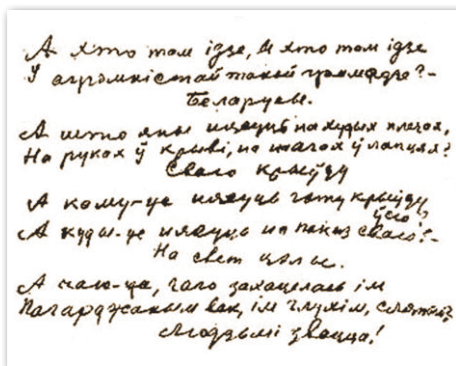 А хто там ідзе, А хто там ідзе
У агромністай такой грамадзе? -
Беларусы.
А што яны нясуць на худых плячах,
На руках ў крыві, на нагах ў лапцях?
Сваю крыўду
А каму-це нясуць гэту крыўду ўсю,
А куды-це нясуць на паказ сваю? -
На свет цэлы.
А чаго-ца, чаго захацелась ім
Пагарджаным век, ім глухім, сляпым?
Людзьмі звацца!